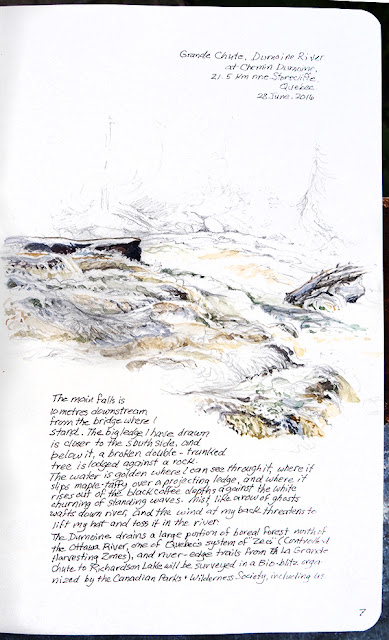 Grande Chute, Dumoine River
at Chemin Dumoine,
21.5 km nne Stonecliffe
Quebec
28 June, 2016
The main falls is
10 metres downstream
from the bridge where I
stand. The big ledge I have drawn
is closer to the south side, and
below it, a broken double-trunked
tree is lodged against a rock.
The water is golden where I can see through it, where it
slips maple-taffy over a projecting ledge, and where it
rises out of the black coffee depths against the white
churning of standing waves. Mist like a row of ghosts
wafts down river, and the wind at my back threatens to
lift my hat and toss it in the river.
The Dumoine drains a large portion of boreal forest north of
the Ottawa River, one of Quebec's system of "Zecs" (Controlled
Harvesting Zones), and river-edge trails from La Grande
Chute to Richardson Lake will be surveyed in a Bio-blitz orga-
nized by the Canadian Parks + Wilderness Society, including us
7